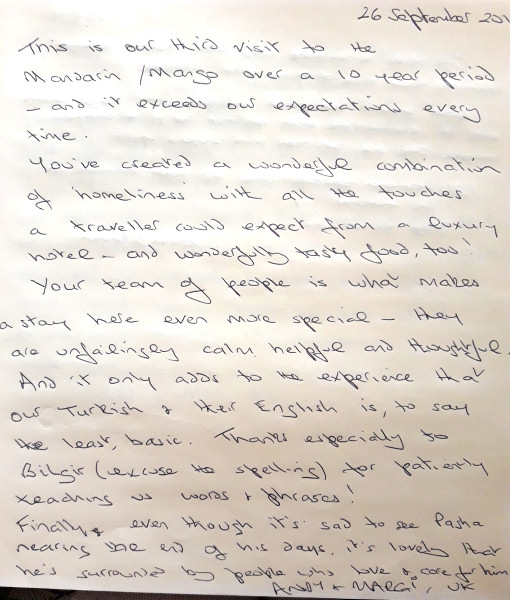 26 September 201
This is our third visit to the
Mandarin / Mango over a 10 year period
- and it exceeds our expectations every
time.
You've created a wonderful combination
of 'homeliness' with all the touches
a traveller could expect from a luxury
hotel - and wonderfully tasty food, too!
Your team of people is what makes
a stay here even more special - they
are unfailingly calm, helpful and thoughtful.
And it only adds to the experience that
our Turkish & their English is, to say
the least, basic. Thanks especially to
Bilgir (excuse the spelling) for patiently
teaching us words & phrases!
Finally, even though it's sad to see Pasha
nearing the end of his days, it's lovely that
he's surrounded by people who love & care for him
ANDY & MARGI, UK